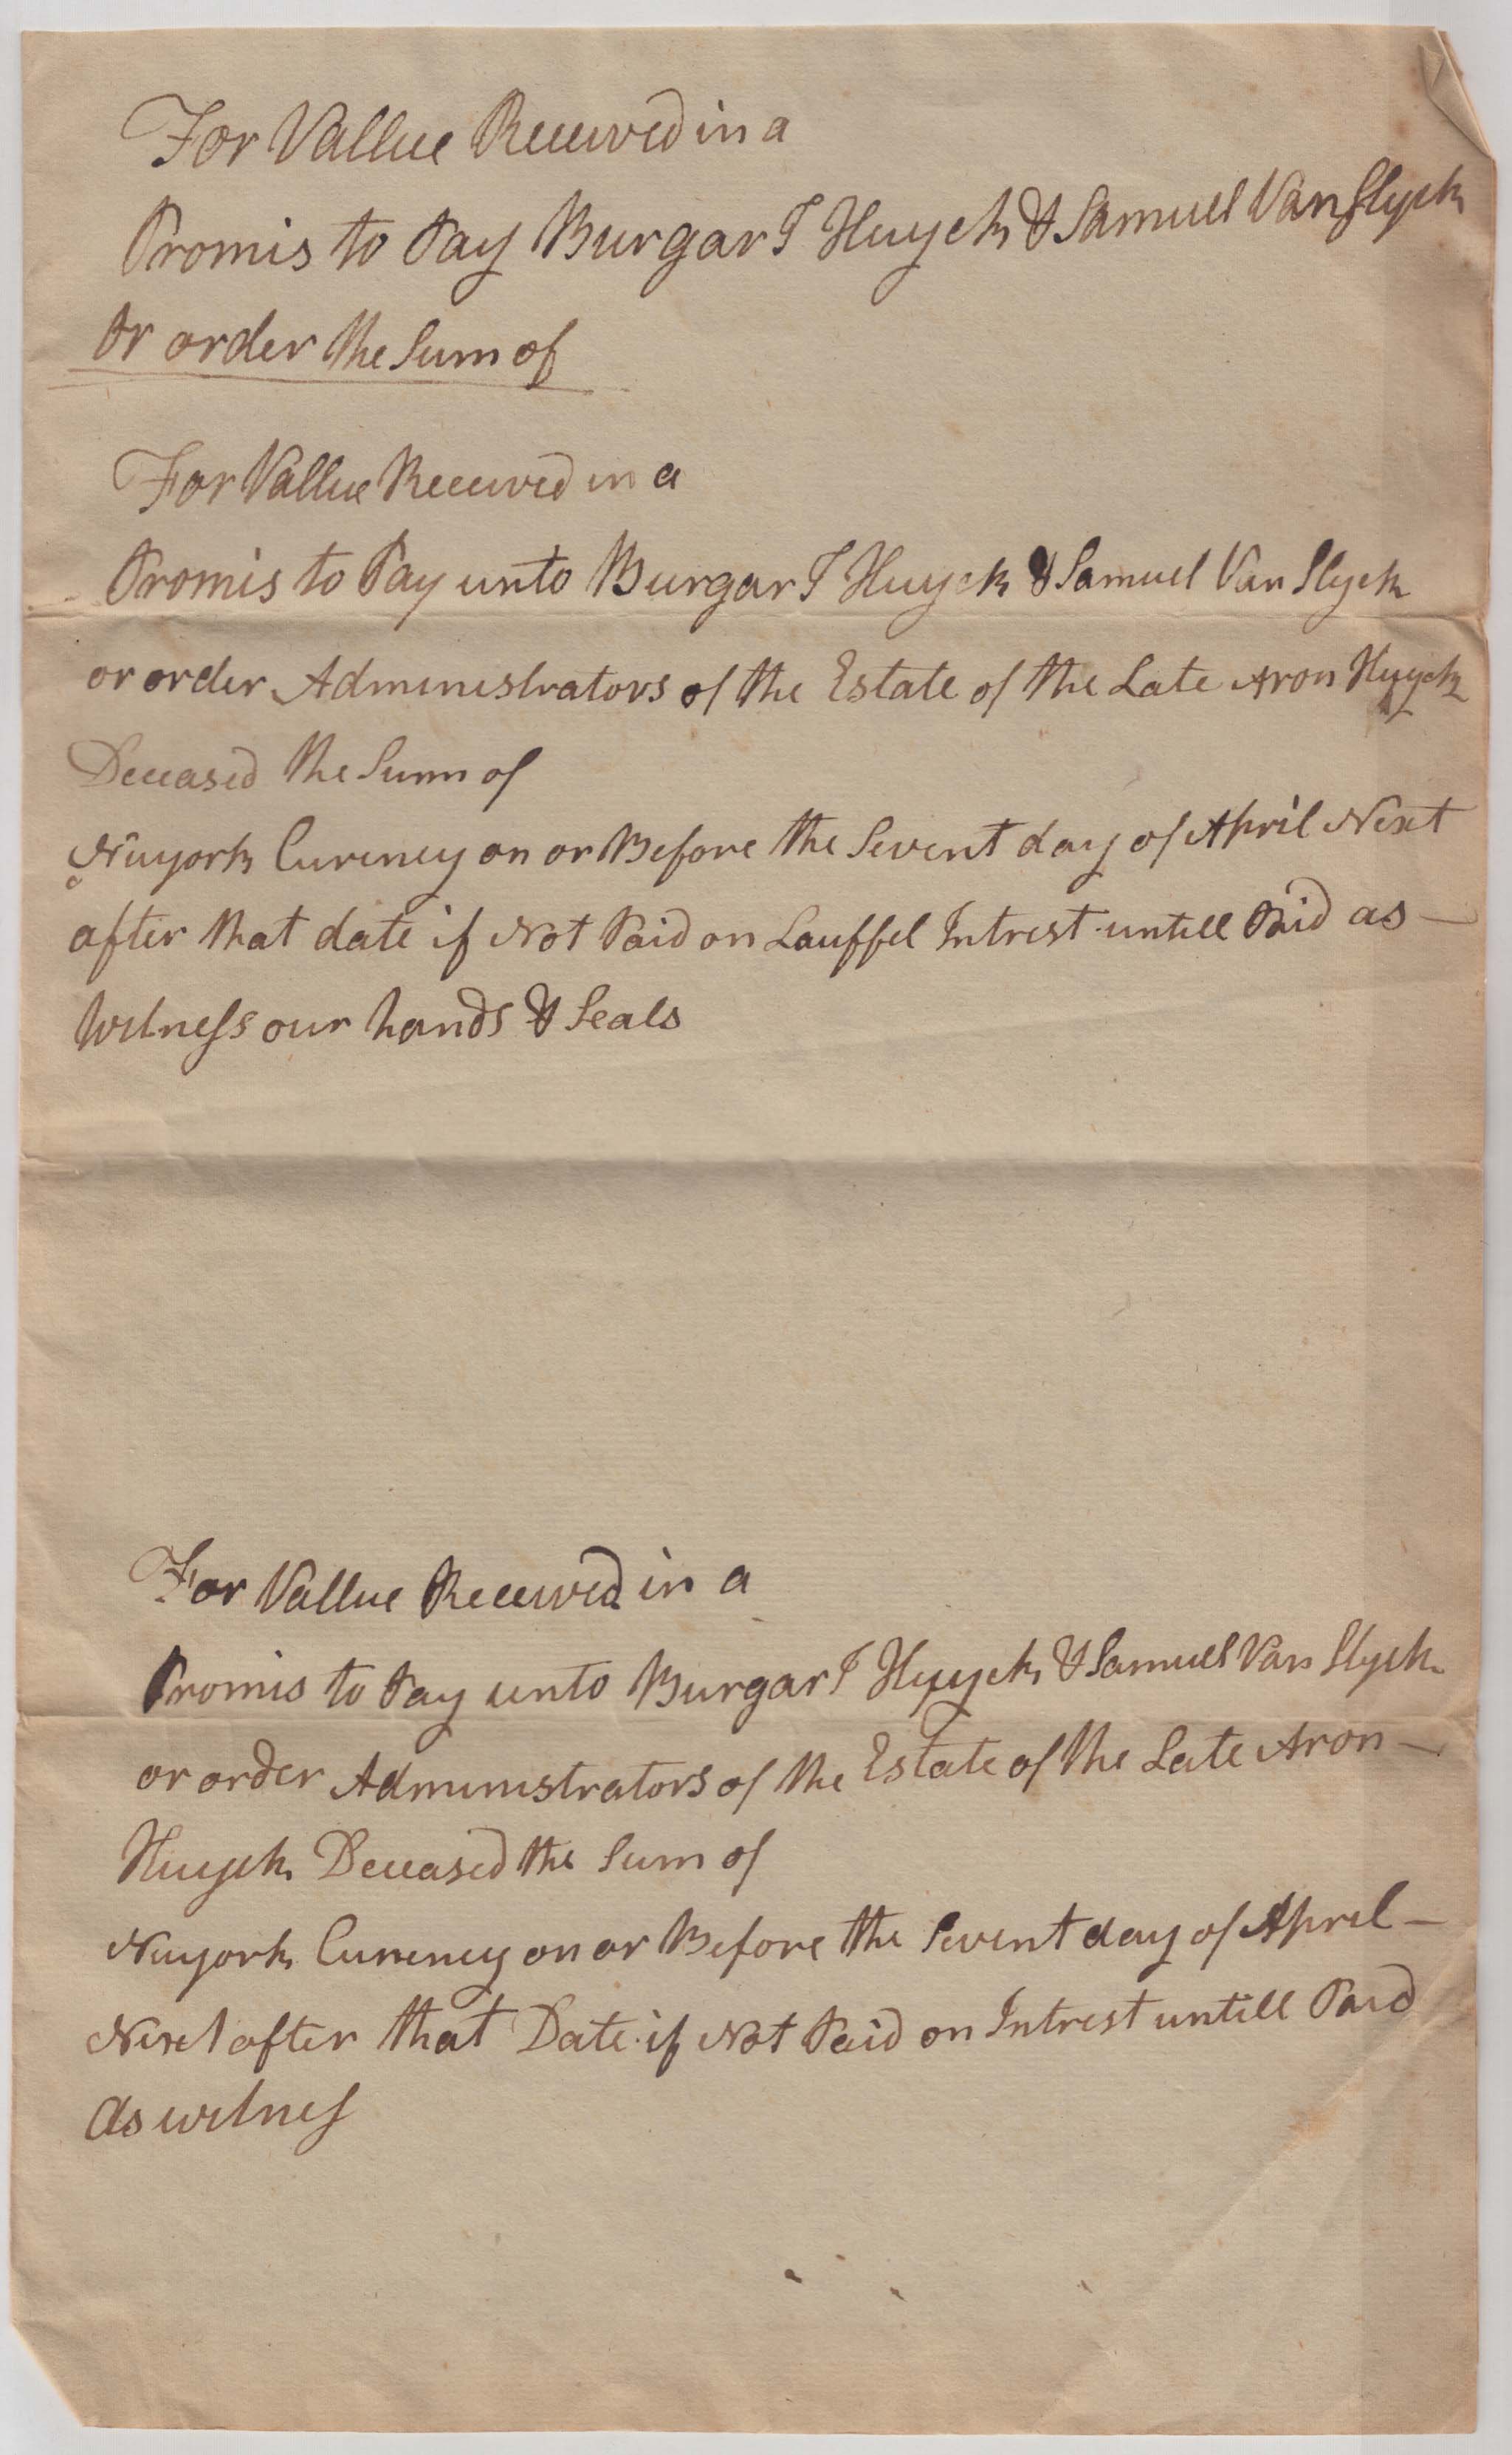 For Vallue Received in a
Promis to Pay Burgar T Huyck & Samuel Van Slyck
Or order the Sum of
For Vallue Received in a
Promis to Pay unto Burgar T Huyck & Samuel Van Slyck
or order Administrators of the Estate of the Late Aron Huyck
Deceased the Sum of
Nuyork Cureney on or Before the Sevent day of April Next
after that date if Not Paid on Lauffel Intrest untill Paid as —
Witness our hands & Seals
For Vallue Received in a
Promis to Pay unto Burgar T Huyck & Samuel Van Slyck
or order Administrators of the Estate of the Late Aron —
Huyck Deceased the Sum of
Nuyork Cureney on or Before the Sevent day of April —
Next after that Date if Not Paid on Intrest untill Paid
As witnes